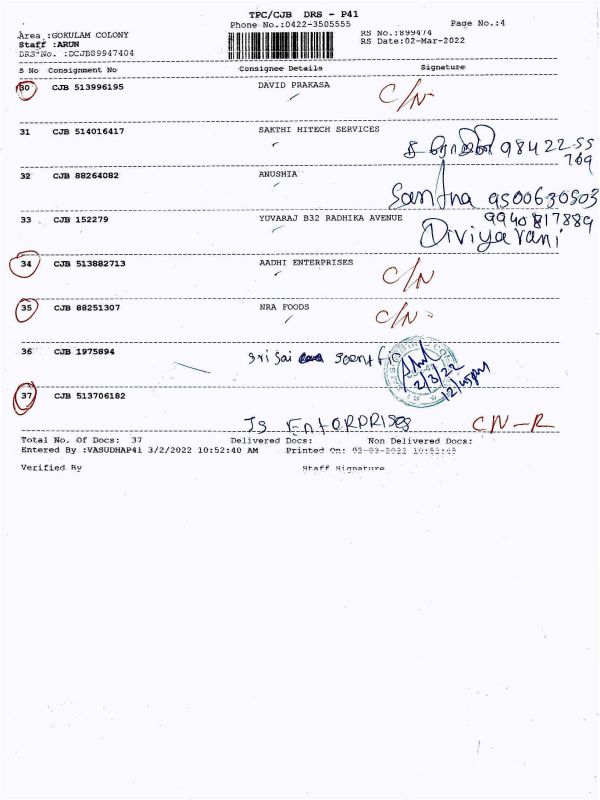 TPC/CJB DRS - P41
Phone No.:0422-3505555
Page No.:4
Area :GOKULAM COLONY
RS No.:899474
Staff :ARUN
RS Date:02-Mar-2022
DRS No. :DCJB89947404
S No Consignment No Consignee Details Signature
30 CJB 513996195 DAVID PRAKASA C/N
31 CJB 514016417 SAKTHI HITECH SERVICES
98422 55
769
32 CJB 88264082 ANUSHIA
9500630503
33 CJB 152279 YUVARAJ B32 RADHIKA AVENUE 9940817889
Diviya vani
34 CJB 513882713 AADHI ENTERPRISES C/N
35 CJB 88251307 NRA FOODS C/N
36 CJB 1975894 Sri Sai
2/3/22
12/45pm
37 CJB 513706182
JS ENTORPRISES CN-R
Total No. Of Docs: 37 Delivered Docs: Non Delivered Docs:
Entered By :VASUDHAP41 3/2/2022 10:52:40 AM Printed On: 02-03-2022 10:52:45
Verified By Staff Signature